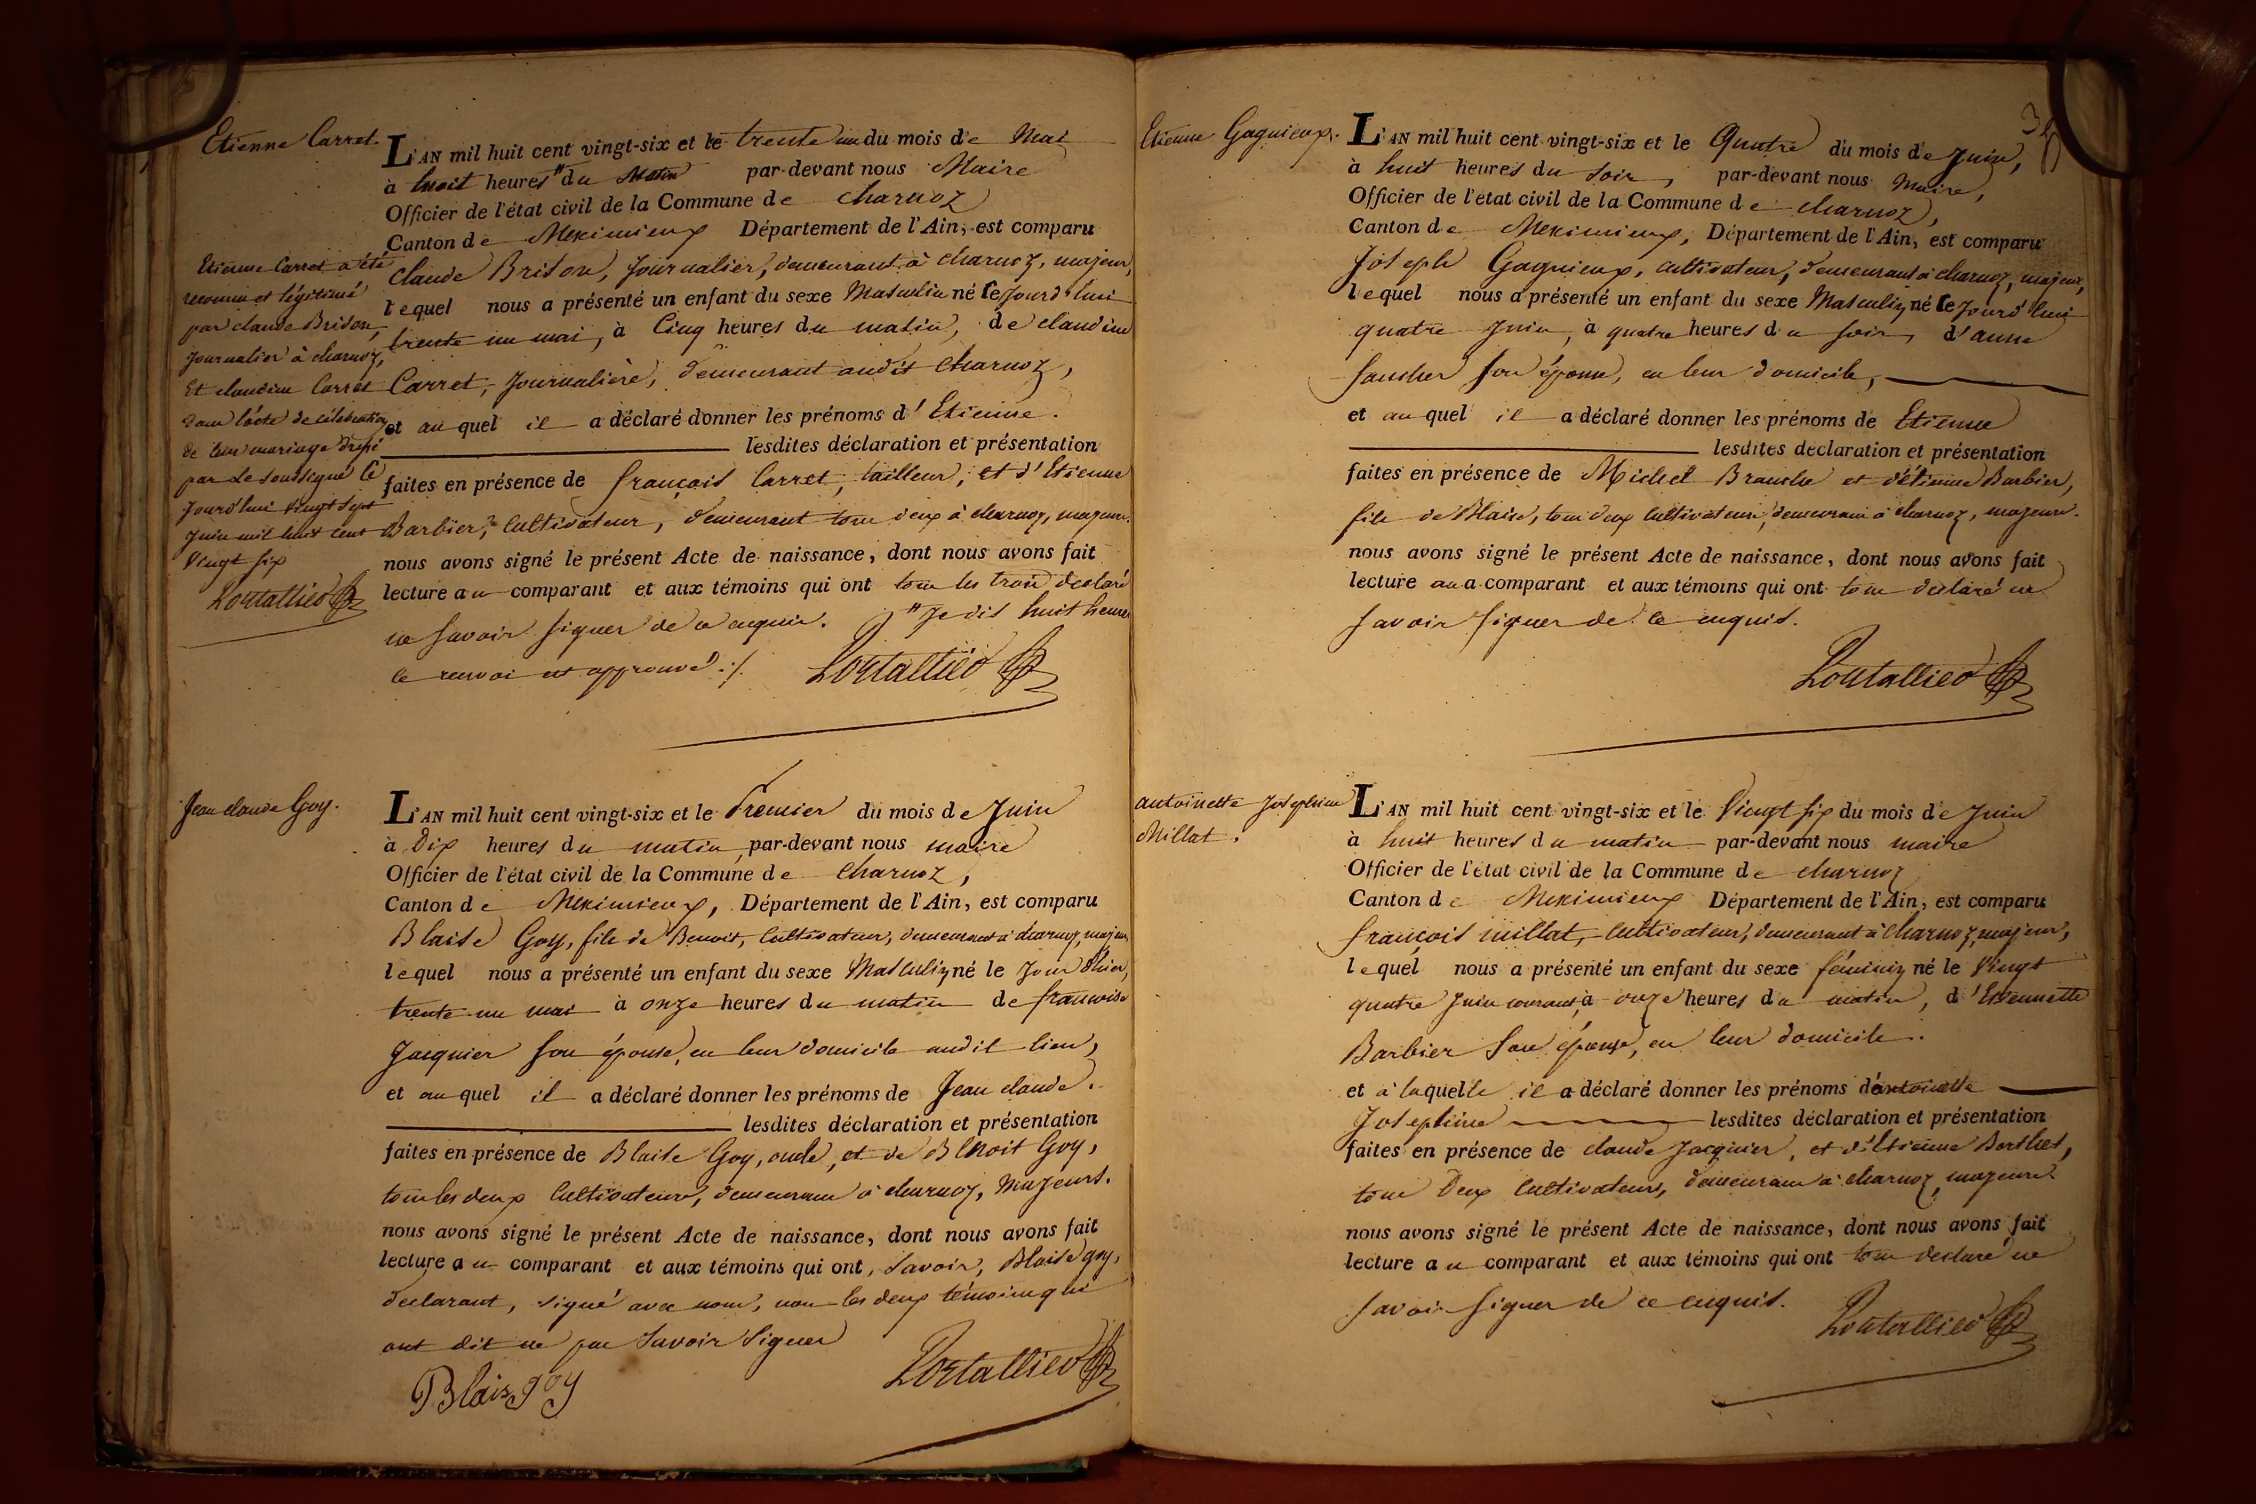 Etienne Carret.
L'AN mil huit cent vingt-six et le trente un du mois de Mai
à huit heures " du Matin par-devant nous Maire
Officier de l'état civil de la Commune de charnoz
Canton de Meximieux Département de l'Ain, est comparu
claude Brison, Journalier, demeurant à charnoz, majeur,
lequel nous a présenté un enfant du sexe Masculin né ce Jourd'hui
trente un mai, à Cinq heures du matin, de claudine
Carret, Journalière, demeurant audit charnoz,
et au quel il a déclaré donner les prénoms d'Etienne.
lesdites déclaration et présentation
faites en présence de françois Carret, tailleur, et d'Etienne
Barbier, Cultivateur, demeurant tous deux à charnoz, majeurs.
nous avons signé le présent Acte de naissance, dont nous avons fait
lecture au comparant et aux témoins qui ont tous les trois déclaré
ne savoir signer de ce enquis. " Je dis huit heures
le renvoi est approuvé ./.
Etienne Carret a été
reconnu et légitimé
par claude Brison,
Journalier à charnoz,
Et claudine Carret
dans l'acte de célébration
de leur mariage dressé
par le soussigné Ce
Jourd'hui vingt sept
Juin mil huit cent
vingt six
Jean claude Goy.
L'AN mil huit cent vingt-six et le Premier du mois de Juin
à Dix heures du matin, par-devant nous maire
Officier de l'état civil de la Commune de charnoz,
Canton de Meximieux, Département de l'Ain, est comparu
Blaise Goy, fils de Benoit, Cultivateur, demeurant à charnoz, majeur,
lequel nous a présenté un enfant du sexe Masculin né le Jour d'hier,
trente un mai à onze heures du matin de francoise
Jacquier son épouse, en leur domicile audit lieu,
et au quel il a déclaré donner les prénoms de Jean claude.
lesdites déclaration et présentation
faites en présence de Blaise Goy, oncle, et de Benoit Goy,
tous les deux Cultivateurs, demeurant à charnoz, Majeurs.
nous avons signé le présent Acte de naissance, dont nous avons fait
lecture au comparant et aux témoins qui ont, Savoir, Blaise goy,
déclarant, signé avec nous, non les deux témoins qui
ont dit ne pas Savoir Signer
Blaise goy
Etienne Gagnieux.
L'AN mil huit cent vingt-six et le Quatre du mois de Juin,
à huit heures du soir, par-devant nous Maire,
Officier de l'état civil de la Commune de charnoz,
Canton de Meximieux, Département de l'Ain, est comparu
Joseph Gagnieux, cultivateur, demeurant à charnoz, majeur,
lequel nous a présenté un enfant du sexe Masculin né ce Jourd'hui
quatre Juin, à quatre heures du soir, d'anne
faucher son épouse, en leur domicile,
et au quel il a déclaré donner les prénoms de Etienne
lesdites déclaration et présentation
faites en présence de Michel Branche et d'étienne Barbier,
fils de Blaise, tous deux Cultivateurs, demeurant à charnoz, majeurs.
nous avons signé le présent Acte de naissance, dont nous avons fait
lecture au comparant et aux témoins qui ont tous déclaré ne
savoir signer de ce enquis.
antoinette Josephine
Millat.
L'AN mil huit cent vingt-six et le Vingt six du mois de Juin
à huit heures du matin par-devant nous maire
Officier de l'état civil de la Commune de charnoz
Canton de Meximieux Département de l'Ain, est comparu
françois millat, Cultivateur, demeurant à charnoz, majeur,
lequel nous a présenté un enfant du sexe féminin né le Vingt
quatre Juin courant, à onze heures du matin, d'Etiennette
Barbier son épouse, en leur domicile.
et à laquelle il a déclaré donner les prénoms d'antoinette
Josephine lesdites déclaration et présentation
faites en présence de claude Jacquier, et d'Etienne Berthet,
tous Deux Cultivateurs, demeurant à charnoz, majeurs.
nous avons signé le présent Acte de naissance, dont nous avons fait
lecture au comparant et aux témoins qui ont tous déclaré ne
savoir signer de ce enquis.